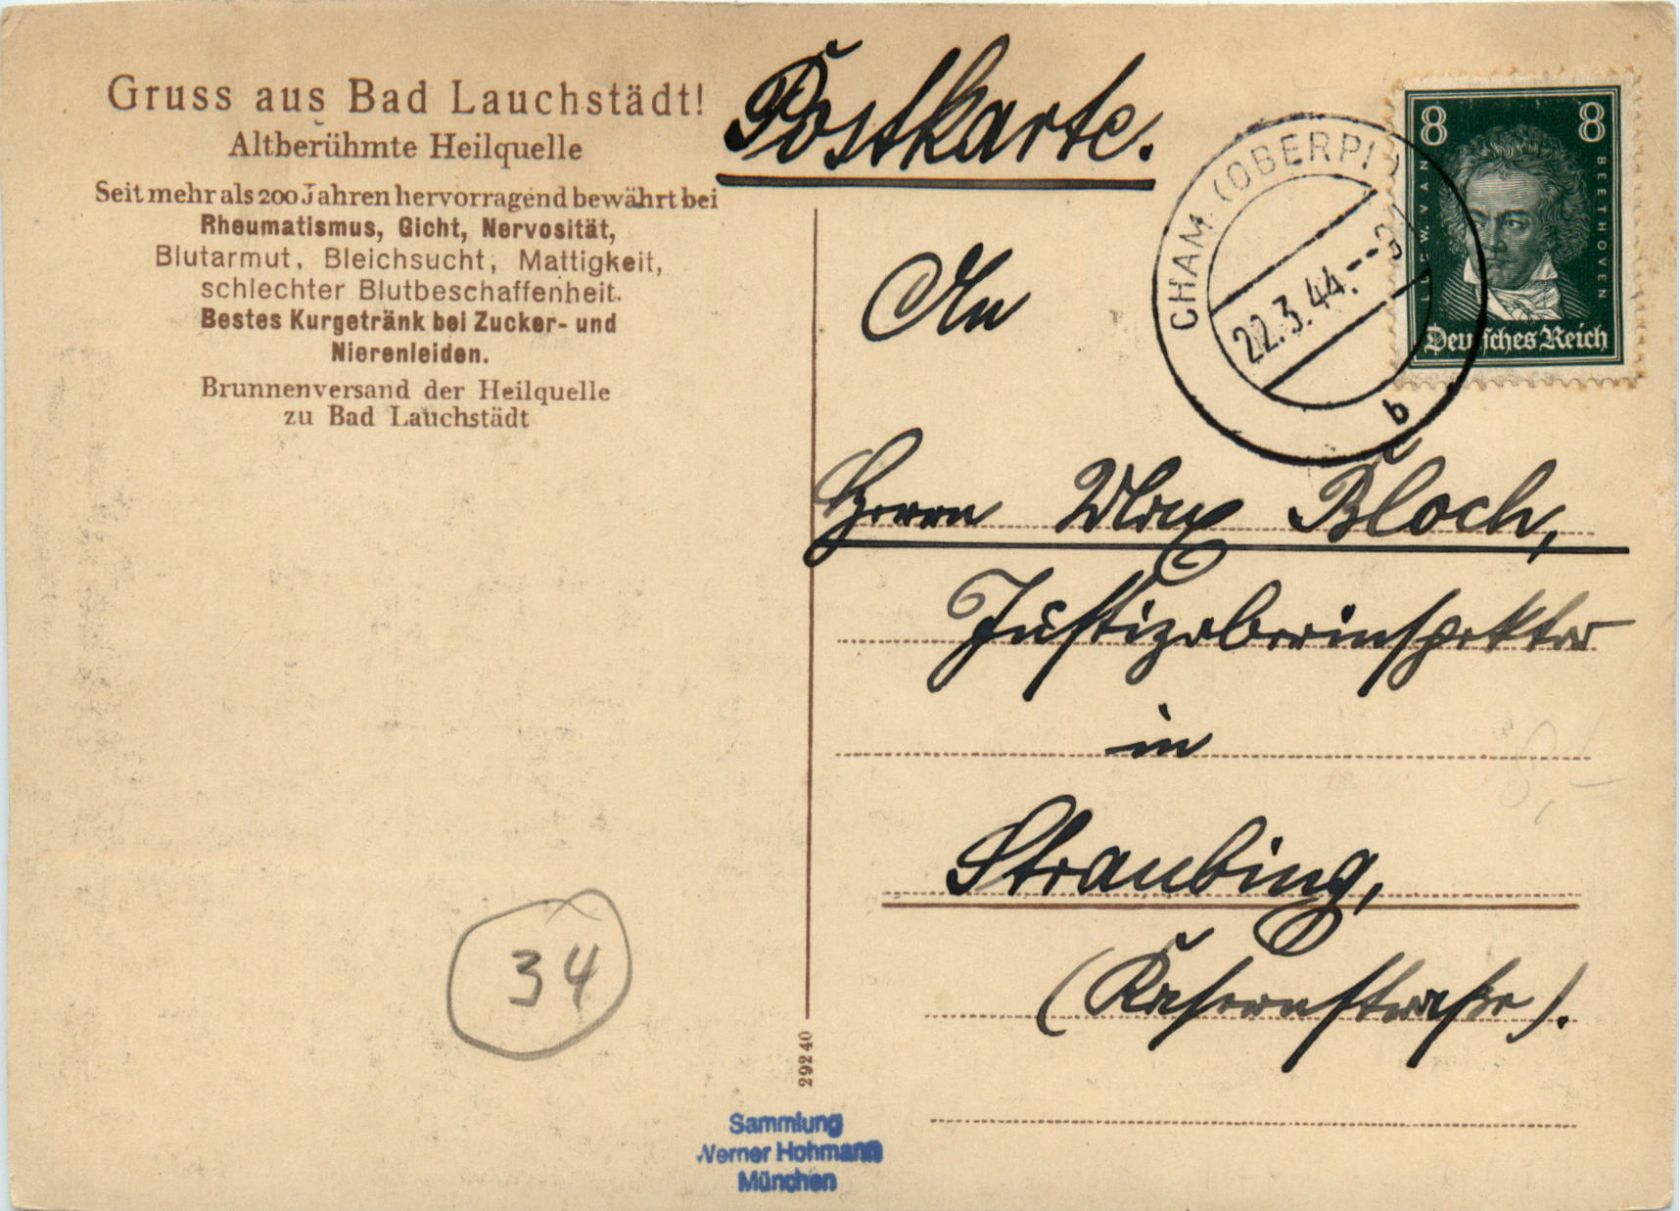 Gruss aus Bad Lauchstädt!
Altberühmte Heilquelle
Seit mehr als 200 Jahren hervorragend bewährt bei
Rheumatismus, Gicht, Nervosität,
Blutarmut, Bleichsucht, Mattigkeit,
schlechter Blutbeschaffenheit.
Bestes Kurgetränk bei Zucker- und
Nierenleiden.
Brunnenversand der Heilquelle
zu Bad Lauchstädt
34
29240
Sammlung
Werner Hohmann
München
Postkarte.
CHAM (OBERPF
22.3.44.
b
8 8
LUDW. VAN BEETHOVEN
Deutsches Reich
An
Herrn Max Bloch,
Justizoberinspektor
in
Straubing,
(Kasernstraße).
8,-